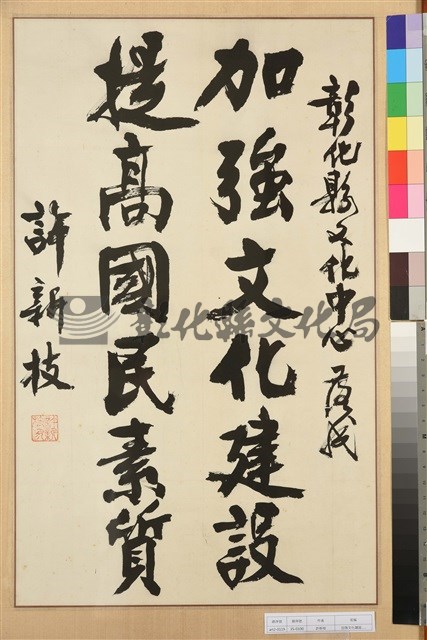 彰化縣文化中心落成
加強文化建設
提高國民素質
許新枝
彰化縣文化局